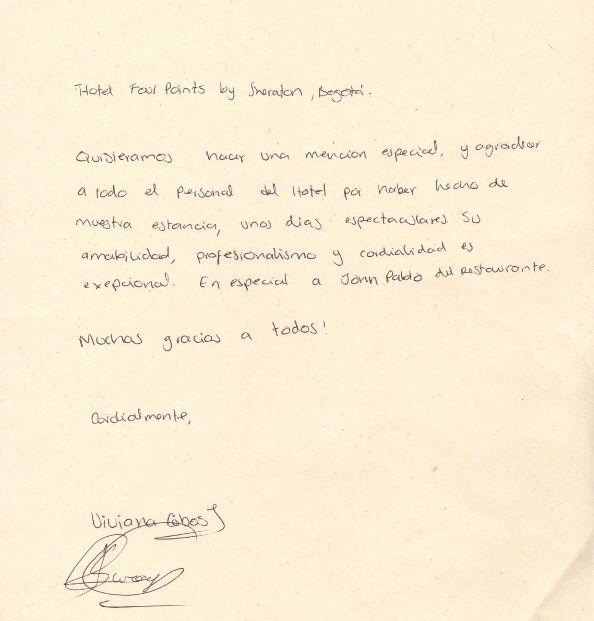 Hotel Four Points by Sheraton, Bogotá.
Quisieramos hacer una mencion especial, y agradecer
a todo el Personal del Hotel por haber hecho de
nuestra estancia, unos días espectaculares. Su
amabilidad, profesionalismo y cordialidad es
exepcional. En especial a John Pablo del Restaurante.
Muchas gracias a todos!
Cordialmente,
Viviana Cobos J